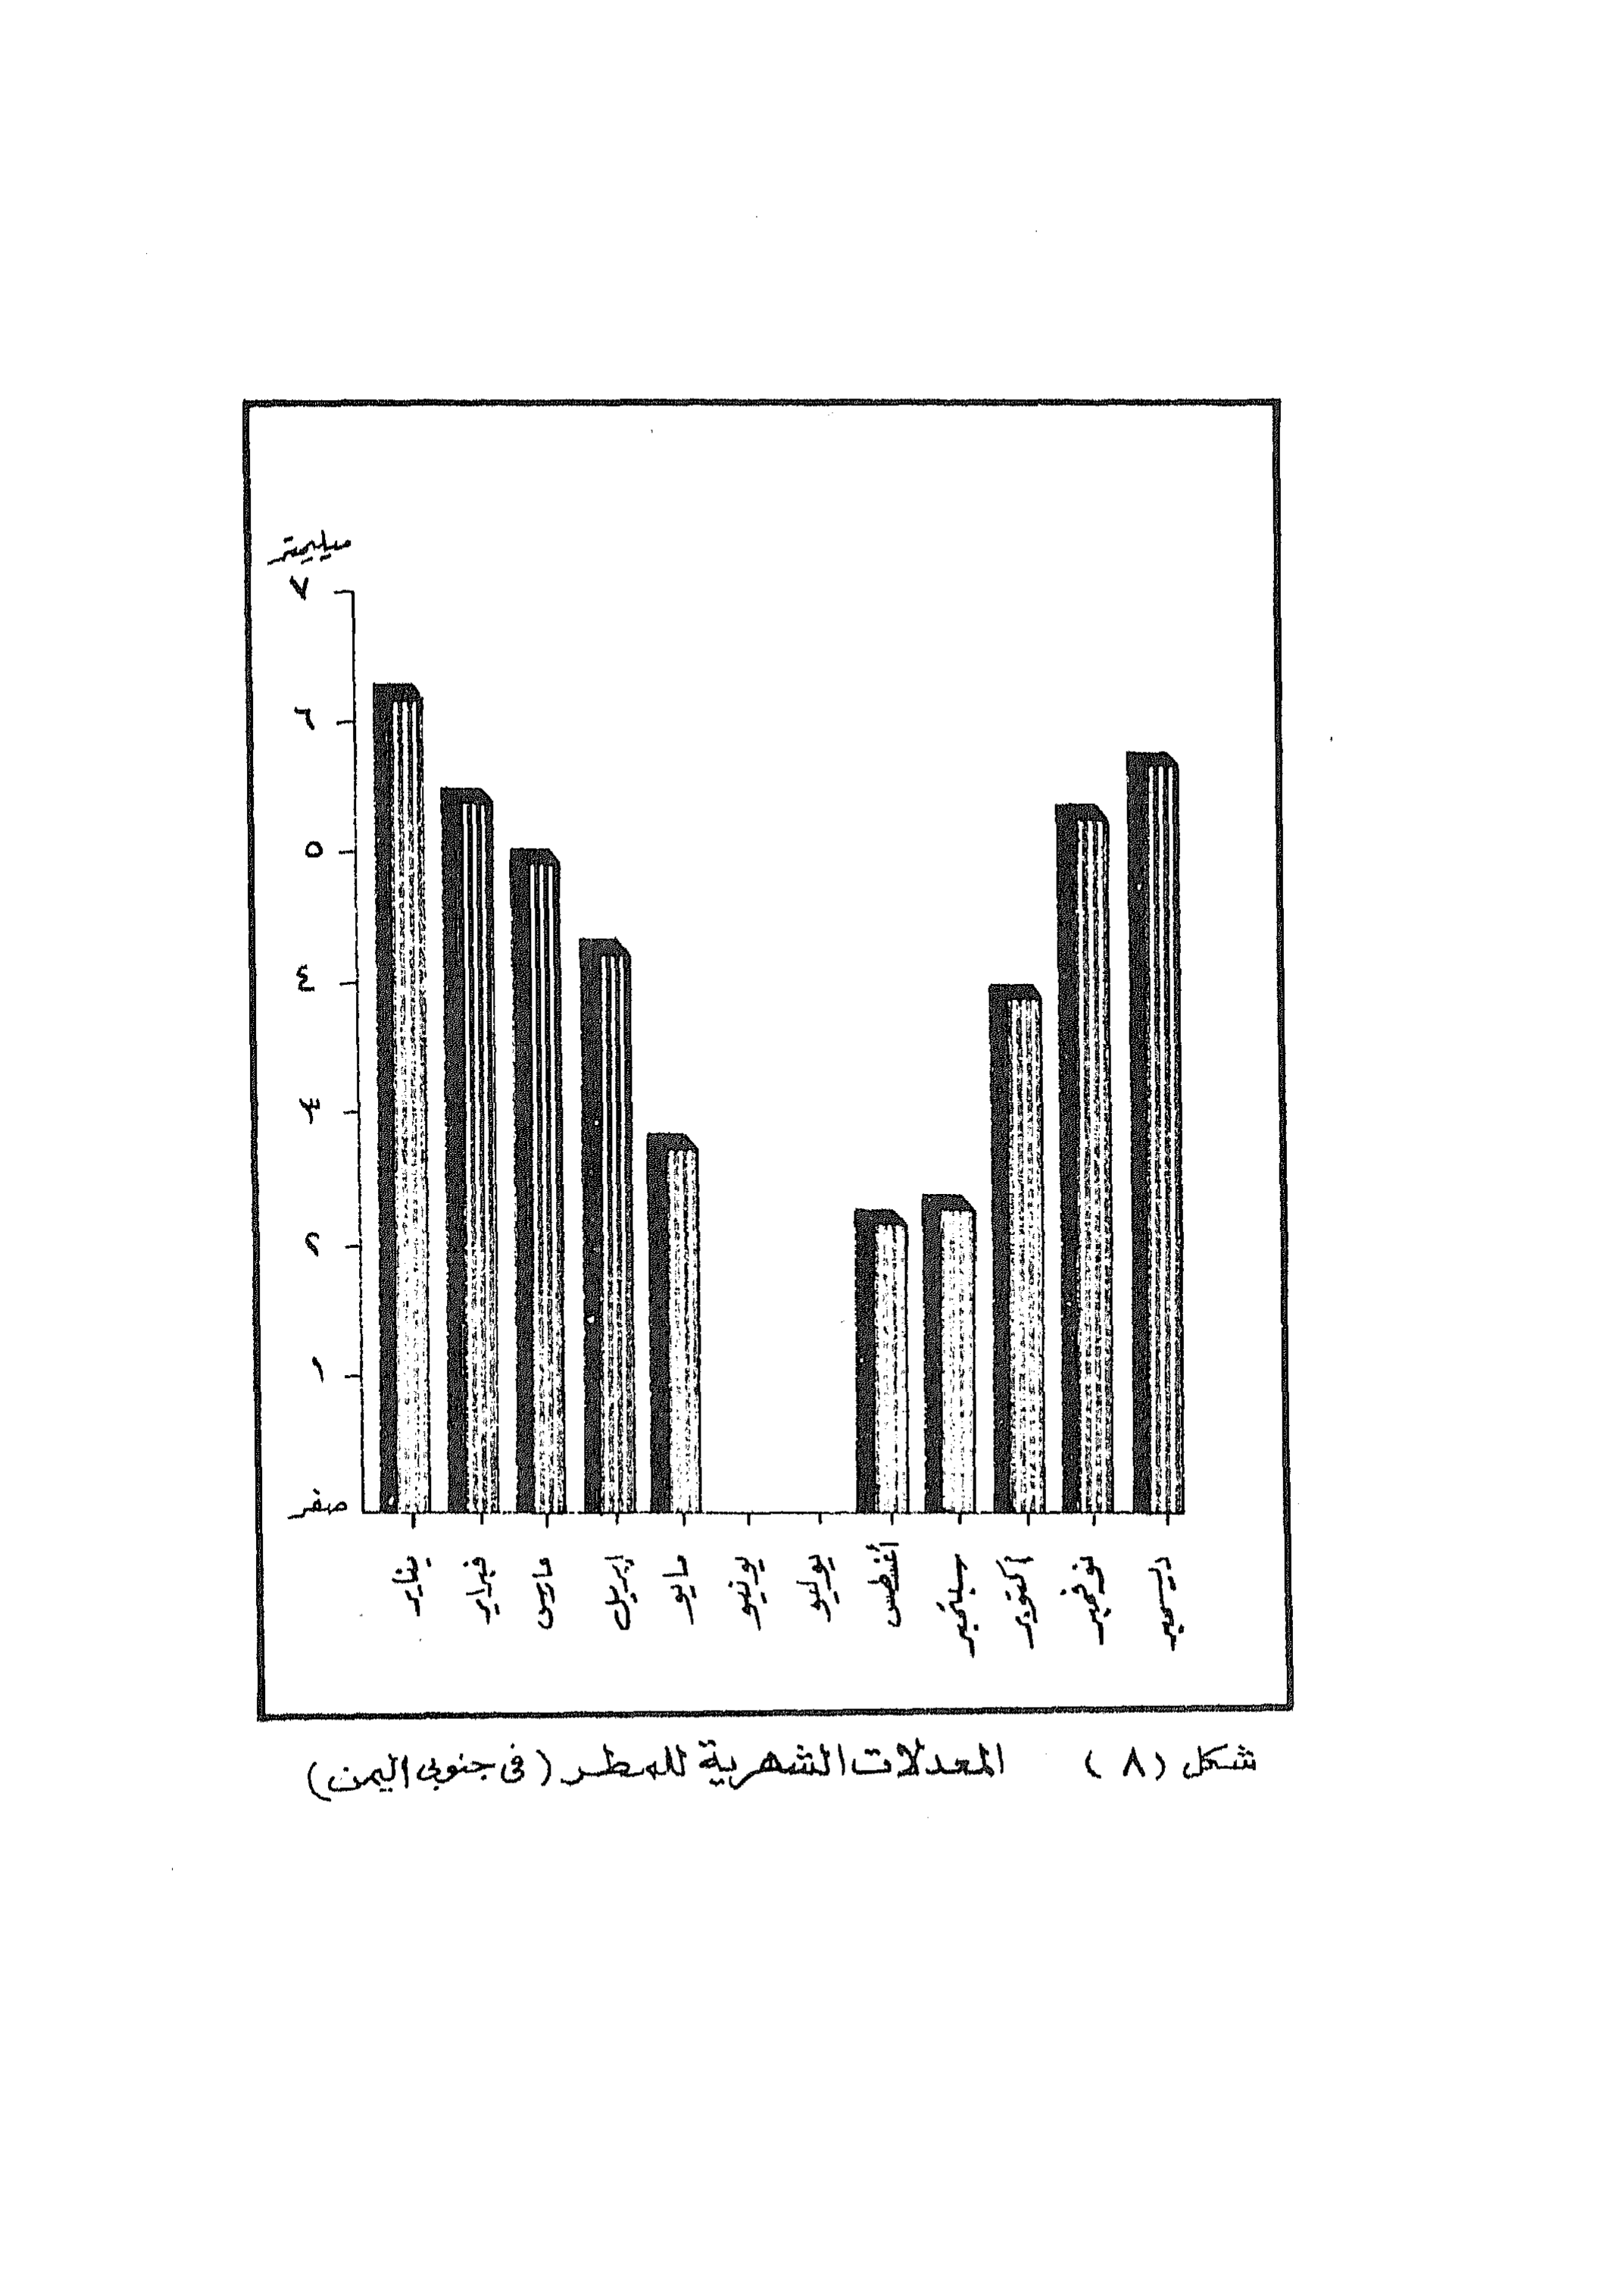 ميليمتر
٧
٦
٥
٤
٣
٢
١
صفر
يناير
فبراير
مارس
إبريل
مايو
يونيو
يوليو
أغسطس
سبتمبر
أكتوبر
نوفمبر
ديسمبر
شكل (٨) المعدلات الشهرية للمطر (فى جنوبى اليمن)